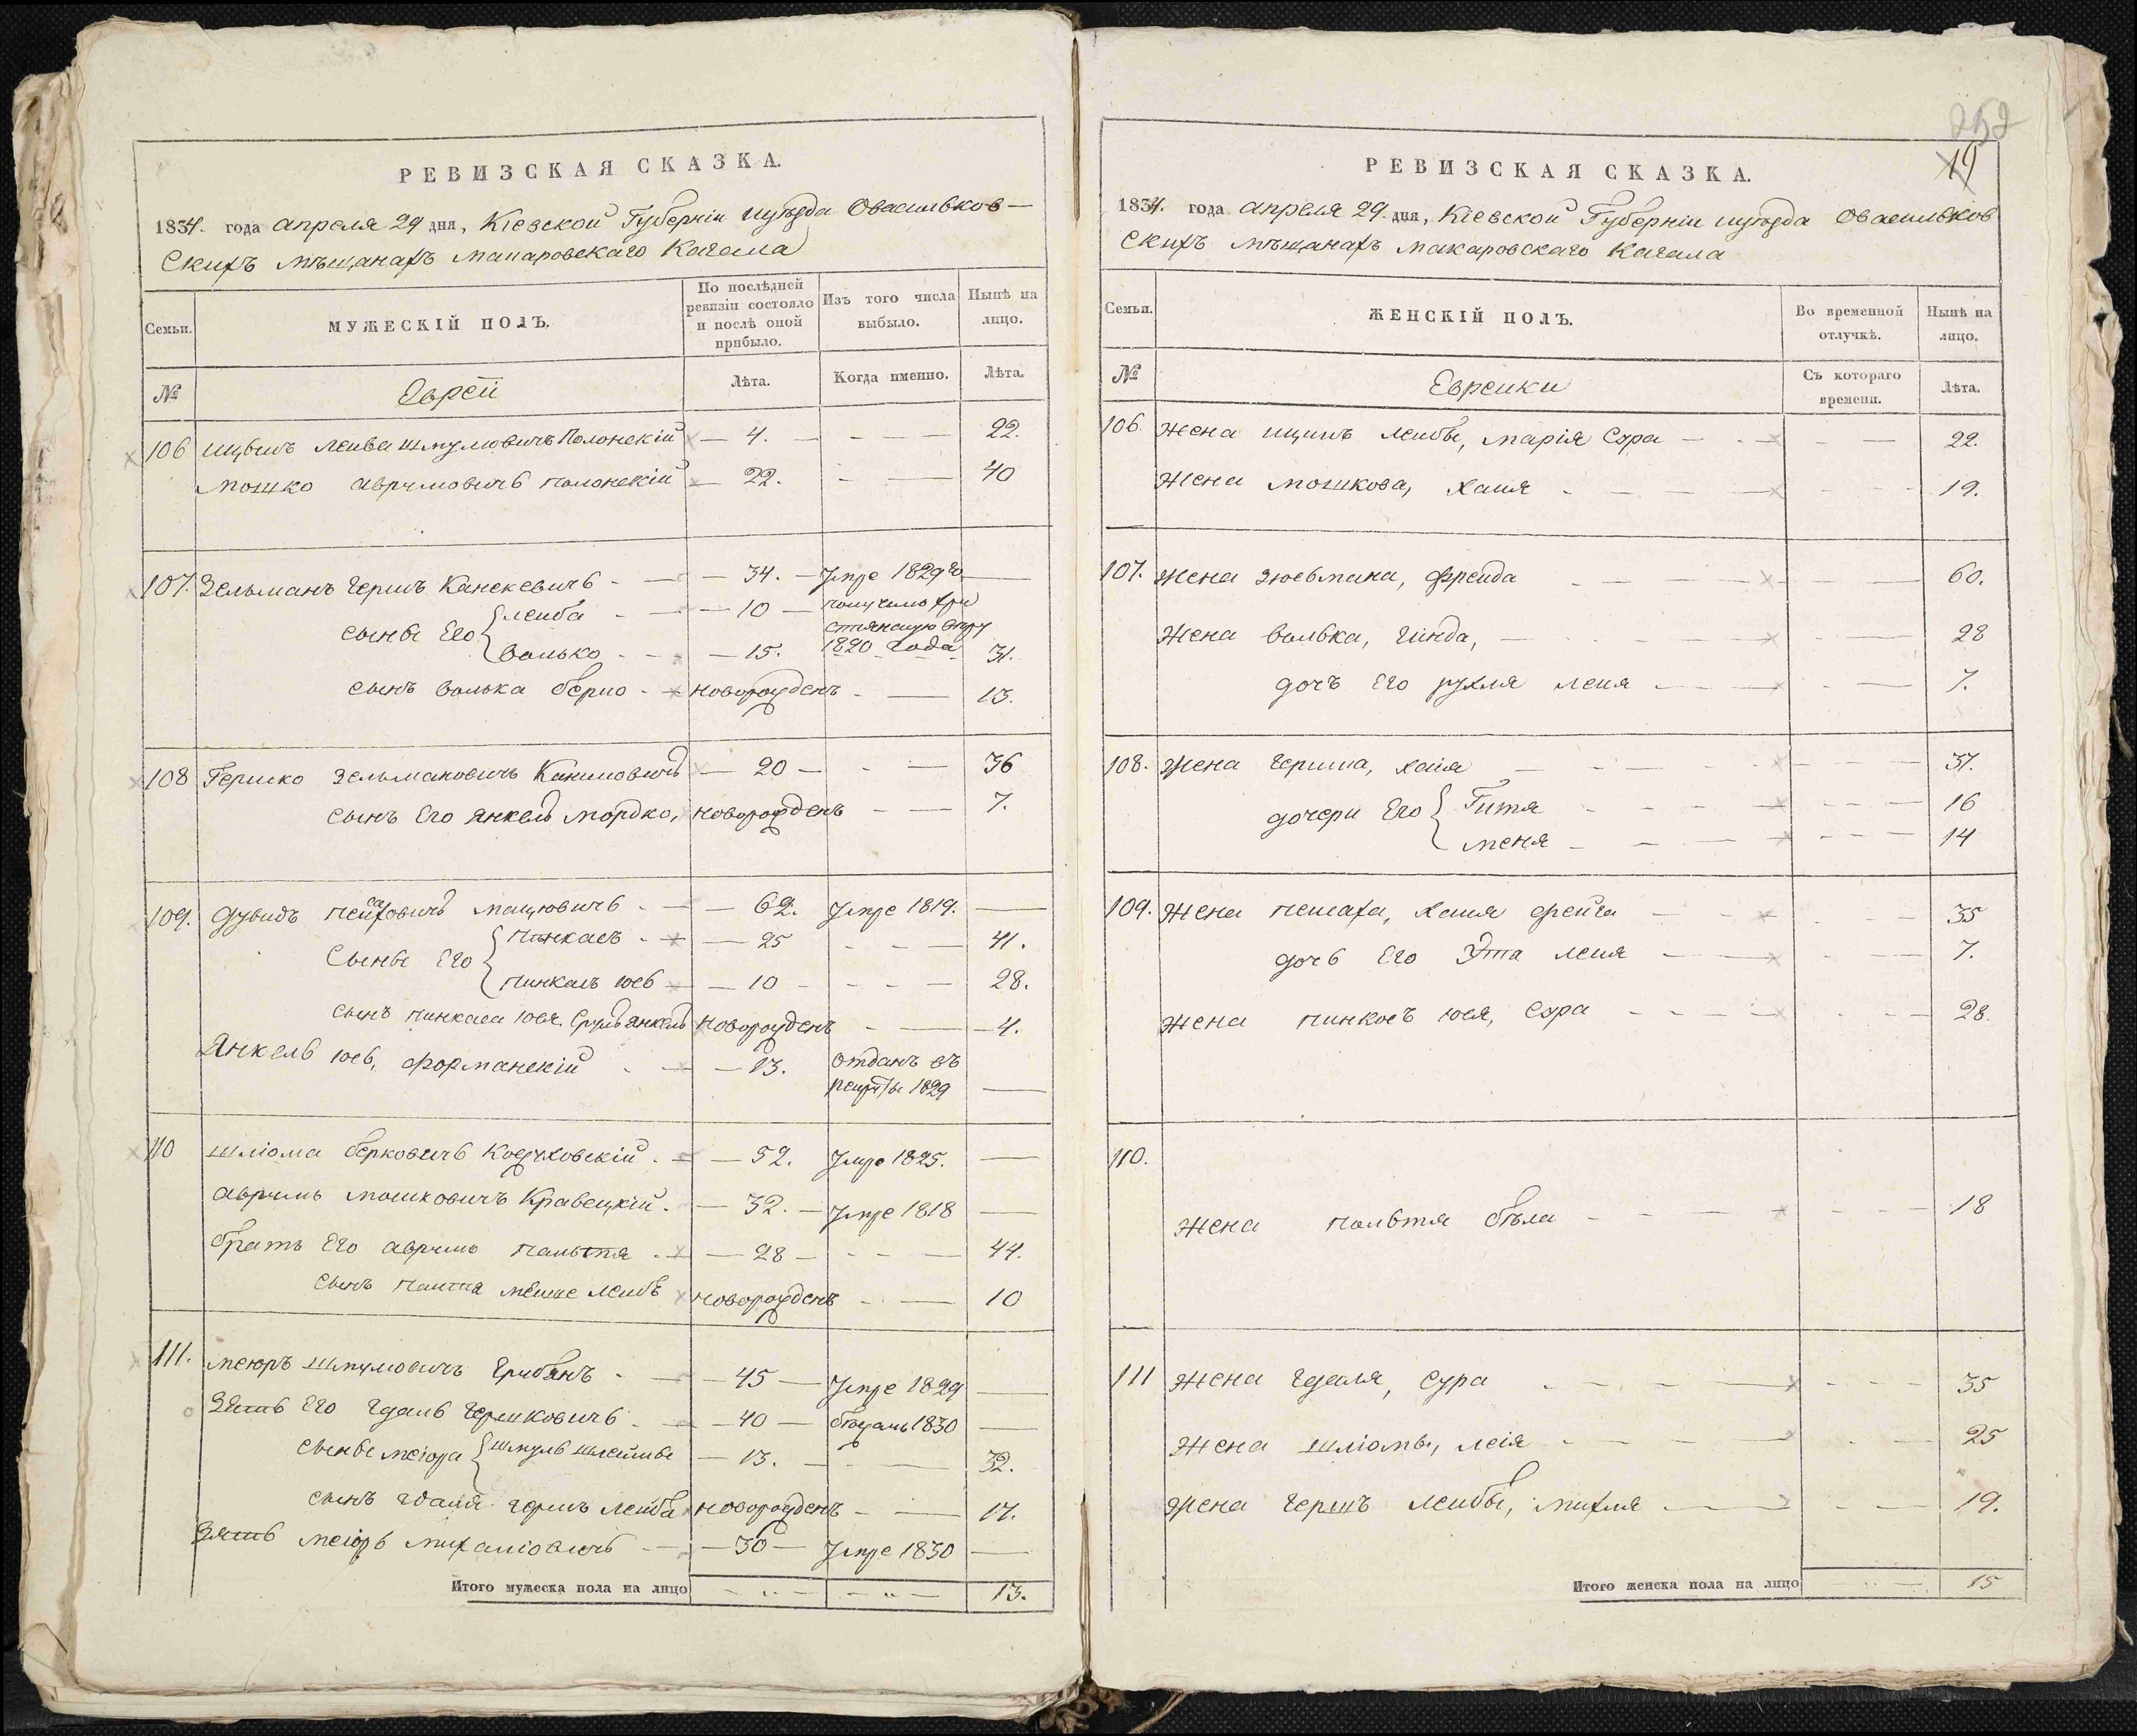 РЕВИЗСКАЯ СКАЗКА.
1834. года апреля 29 дня, Кіевской Губерніи и уѣзда О васильков-
скихъ мѣщанахъ макаровскаго Кагала
Семьи.
МУЖЕСКІЙ ПОЛЪ.
По послѣдней ревизіи состояло и послѣ оной прибыло.
Изъ того числа выбыло.
Нынѣ на лицо.
№
Еврей
Лѣта.
Когда именно.
Лѣта.
106 Лейба Шмулювичъ Полонскій — 4. — 22.
мошко аврумовичъ полонскій — 22. — 40
107. Зельманъ Гершъ Каневичъ — 34. — Умре 1829го —
сыны Его { лейба — 10 — получилъ хри
стянскую вѣру
1820 года
волько — 15. 31.
сынъ волька берко — новорожденъ — 13.
108 Гершко зельмановичъ — 20 — 36
сынъ Его янкель мордко, новорожденъ — 7.
109. дувидъ мацювичъ — 62. Умре 1819. —
Сыны Его { — 25 — 41.
пинкасъ юсь — 10 — 28.
сынъ пинкаса юся. Сруль янкель новорожденъ — 4.
Янкель юсь, форманскій — 13. отданъ въ
рекруты 1829 —
110 шліома берковичъ — 52. Умре 1825. —
аврумъ мошковичъ Кравецкій. — 32. — Умре 1818 —
братъ Его аврумъ пальтя — 28 — 44.
сынъ палтя лейбъ новорожденъ — 10
111. меюръ шмулювичъ — 45 — Умре 1829 —
зять Его гдаль гершковичъ — 40 — бѣжалъ 1830 —
сыны меіора { шмуль — 13. — 32.
сынъ гдаля гершъ лейба новорожденъ — 17.
зять меіоръ — 30 — Умре 1830 —
Итого мужеска пола на лицо — „ — — „ — 13.
252
19
РЕВИЗСКАЯ СКАЗКА.
1834. года апреля 29. дня, Кіевской Губерніи и уѣзда О васильков
скихъ мѣщанахъ макаровскаго Кагала
Семьи.
ЖЕНСКІЙ ПОЛЪ.
Во временной отлучкѣ.
Нынѣ на лицо.
№
Еврейки
Съ котораго времени.
Лѣта.
106. жена ицикъ лейбы, марія Сура — 22.
жена мошкова, хаия — 19.
107. жена зюсьмана, фрейда — 60.
жена волька, гинда, — 28
дочъ его рухля лея — 7.
108. жена герша, хаія — 37.
дочери Его { Гитя — 16
меня — 14
109. жена песаха, хаия фейга — 35
дочь Его Эта лея — 7.
жена пинкосъ юся, Сура — 28.
110.
жена пальтя бѣла — 18
111 жена гдаля, сура — 35
жена шліомы, леія — 25
жена гершъ лейбы, михля — 19.
Итого женска пола на лицо 15